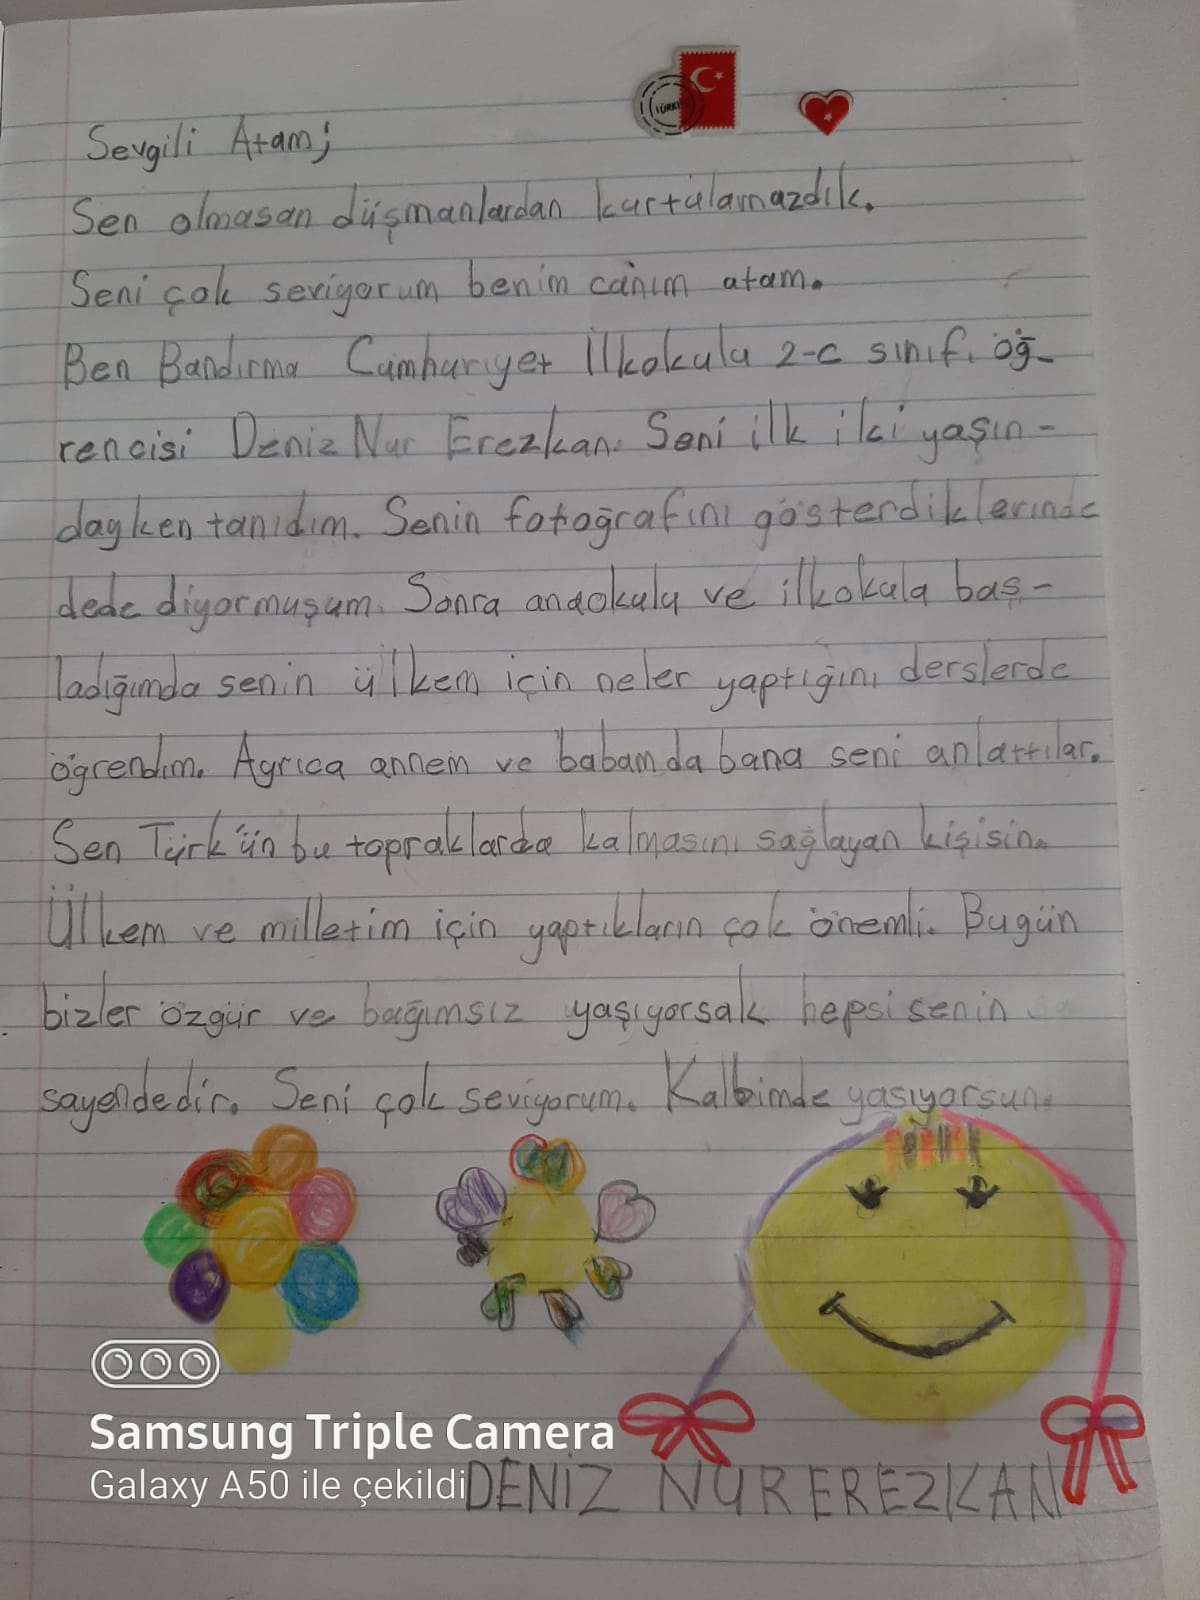 TÜRKİY
Sevgili Atam;
Sen olmasan düşmanlardan kurtulamazdık.
Seni çok seviyorum benim canım atam.
Ben Bandırma Cumhuriyet İlkokulu 2-C sınıfı öğ-
rencisi Deniz Nur Erezkan. Seni ilk iki yaşın-
dayken tanıdım. Senin fotoğrafını gösterdiklerinde
dede diyormuşum. Sonra anaokulu ve ilkokula baş-
ladığımda senin ülkem için neler yaptığını derslerde
öğrendim. Ayrıca annem ve babamda bana seni anlattılar.
Sen Türk'ün bu topraklarda kalmasını sağlayan kişisin.
Ülkem ve milletim için yaptıkların çok önemli. Bugün
bizler özgür ve bağımsız yaşıyorsak hepsi senin
sayendedir. Seni çok seviyorum. Kalbimde yaşıyorsun.
Samsung Triple Camera
Galaxy A50 ile çekildi
DENİZ NUR EREZKAN